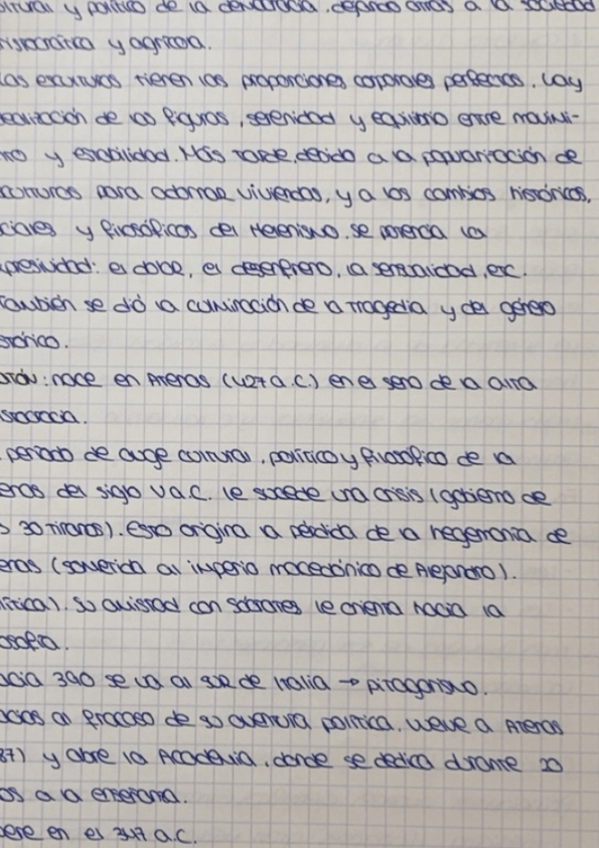 y político de la democracia, dejando atrás a la sociedad
y agrícola.
Las esculturas tienen las proporciones corporales perfectas. Hay
de las figuras, serenidad y equilibrio entre movimi-
to y estabilidad. Más tarde, debido a la popularización de
culturas para adornar viviendas, y a los cambios históricos,
ciales y filosóficos del Helenismo. se potencia la
presividad: el dolor, el desenfreno, la sensualidad, etc.
También se dió la culminación de la tragedia y del género
stórico.
atón: nace en Atenas (427 a.C.) en el seno de la alta
stocracia.
periodo de auge cultural, político y filosófico de la
enas del siglo V a.C. le sucede una crisis (gobierno de
s 30 tiranos). Esto origina la pérdida de la hegemonía de
enas (sometida al imperio macedónico de Alejandro).
lítica). Su amistad con Sócrates le orienta hacia la
osofía.
acia 390 se va al sur de Italia → pitagorismo.
al fracaso de su aventura política. vuelve a Atenas
87) y abre la Academia, donde se dedica durante 20
os a la enseñanza.
ere en el 347 a.C.